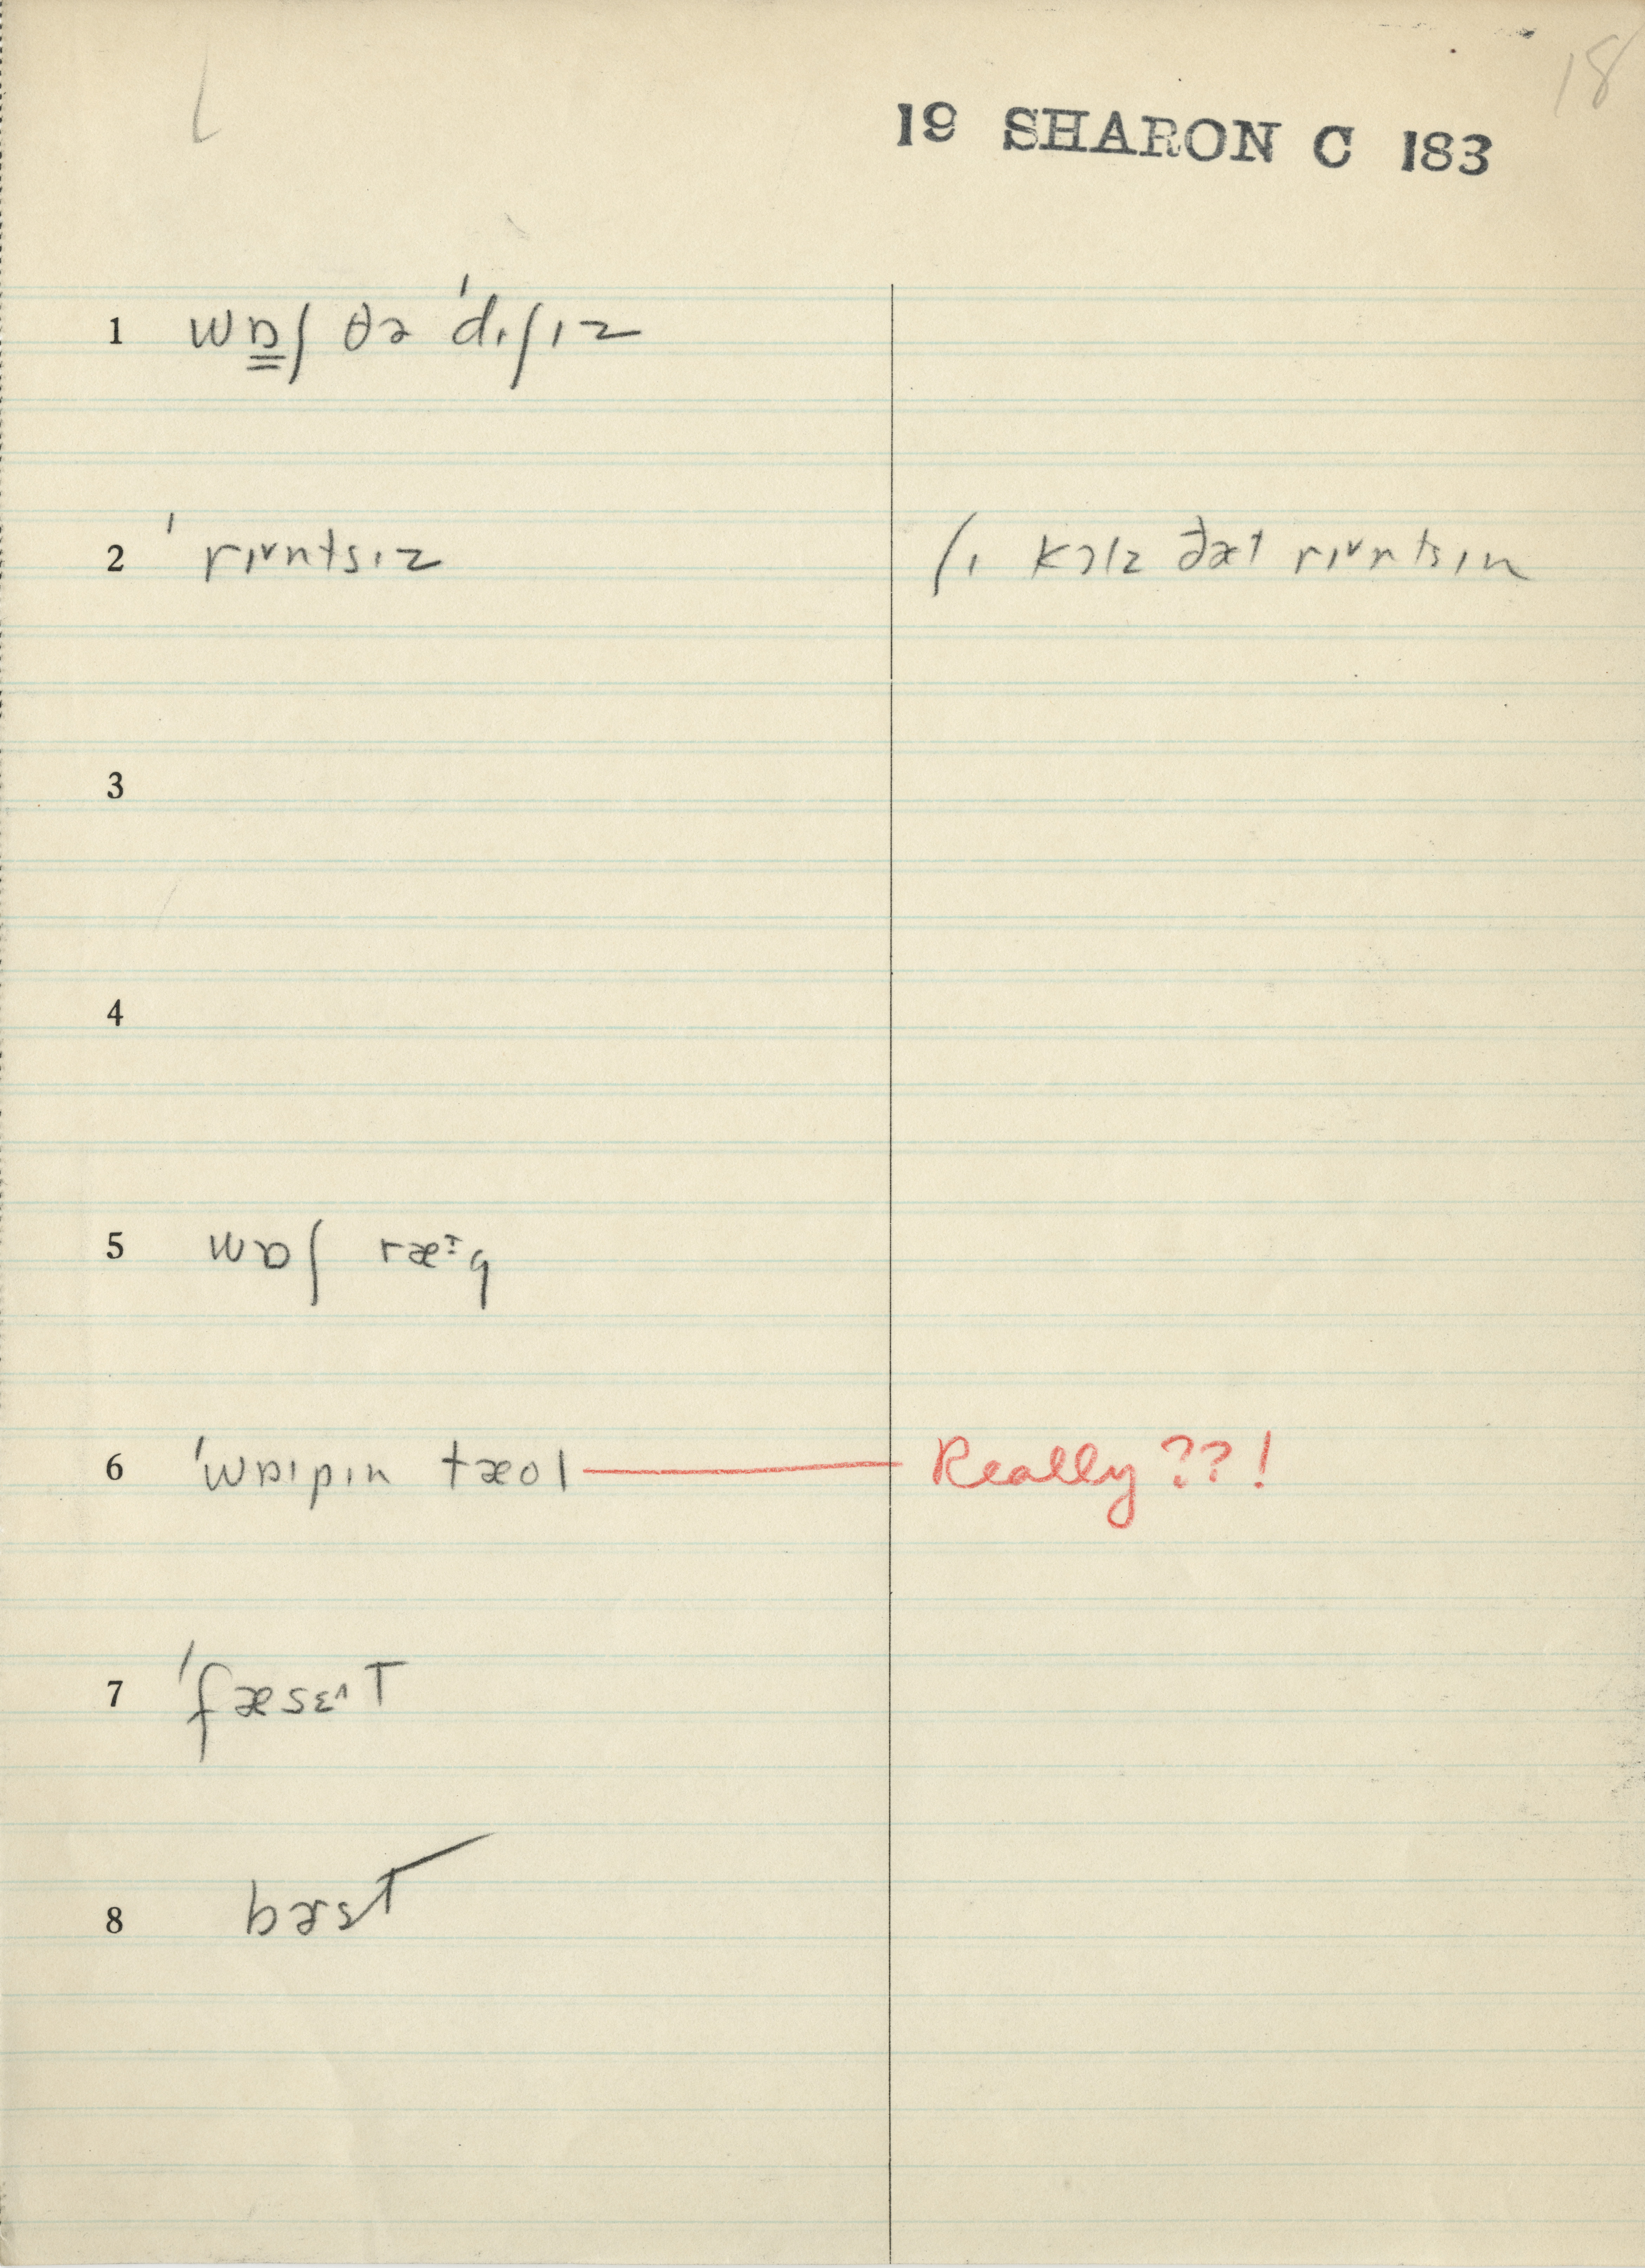 18
19 SHARON C 183
1 wɒ̳ʃ ðə ˈdɪʃɪz
2 ˈrɪ˅ntsɪz ʃɪ kɔlz ðæt rɪ˅ntsɪn
3
4
5 wɒʃ ræˑɪg
6 ˈwɒɪpɪn tæol Really ??!
7 ˈfæsɛ˄T
8 bɜsT